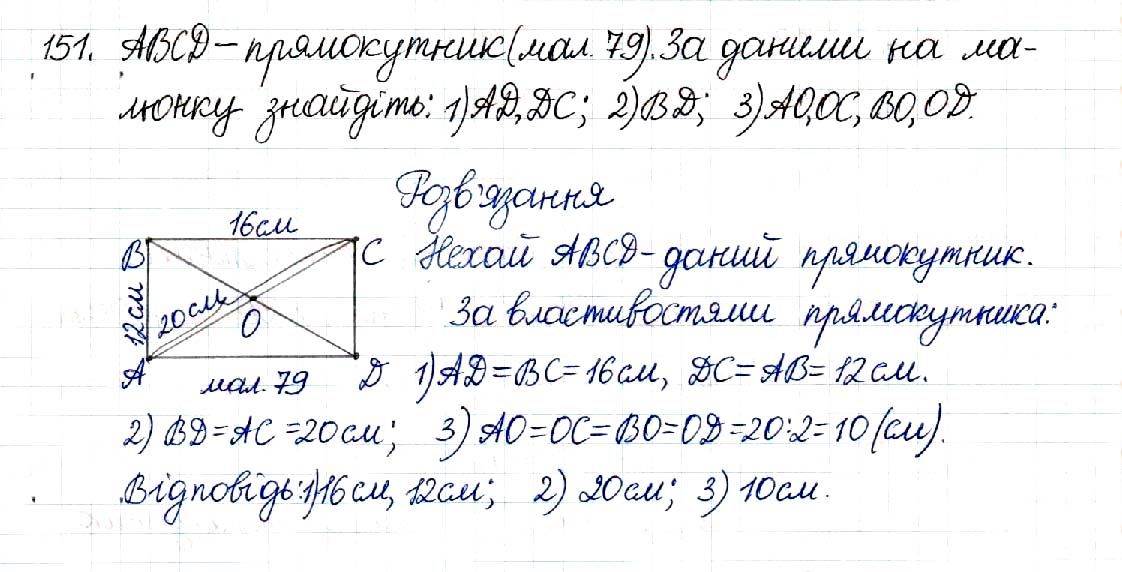 151. ABCD – прямокутник (мал. 79). За даними на ма-
люнку знайдіть: 1) AD, DC; 2) BD; 3) AO, OC, BO, OD.
Розв'язання
16см
B
C
Нехай ABCD – даний прямокутник.
12см
20см
O
За властивостями прямокутника:
A
мал. 79
D
1) AD = BC = 16см, DC = AB = 12см.
2) BD = AC = 20см; 3) AO = OC = BO = OD = 20:2 = 10 (см).
Відповідь: 1) 16см, 12см; 2) 20см; 3) 10см.